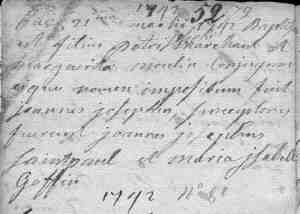 1792 52
hac 21 martii baptis
est filius Petri Marchant et
margarita moulin conjugum
cujus nomen impositum fuit
joannes josephus susceptores
fuerunt joannes josephus
saintpaul et maria jsabelle
Goffin
1792 N°